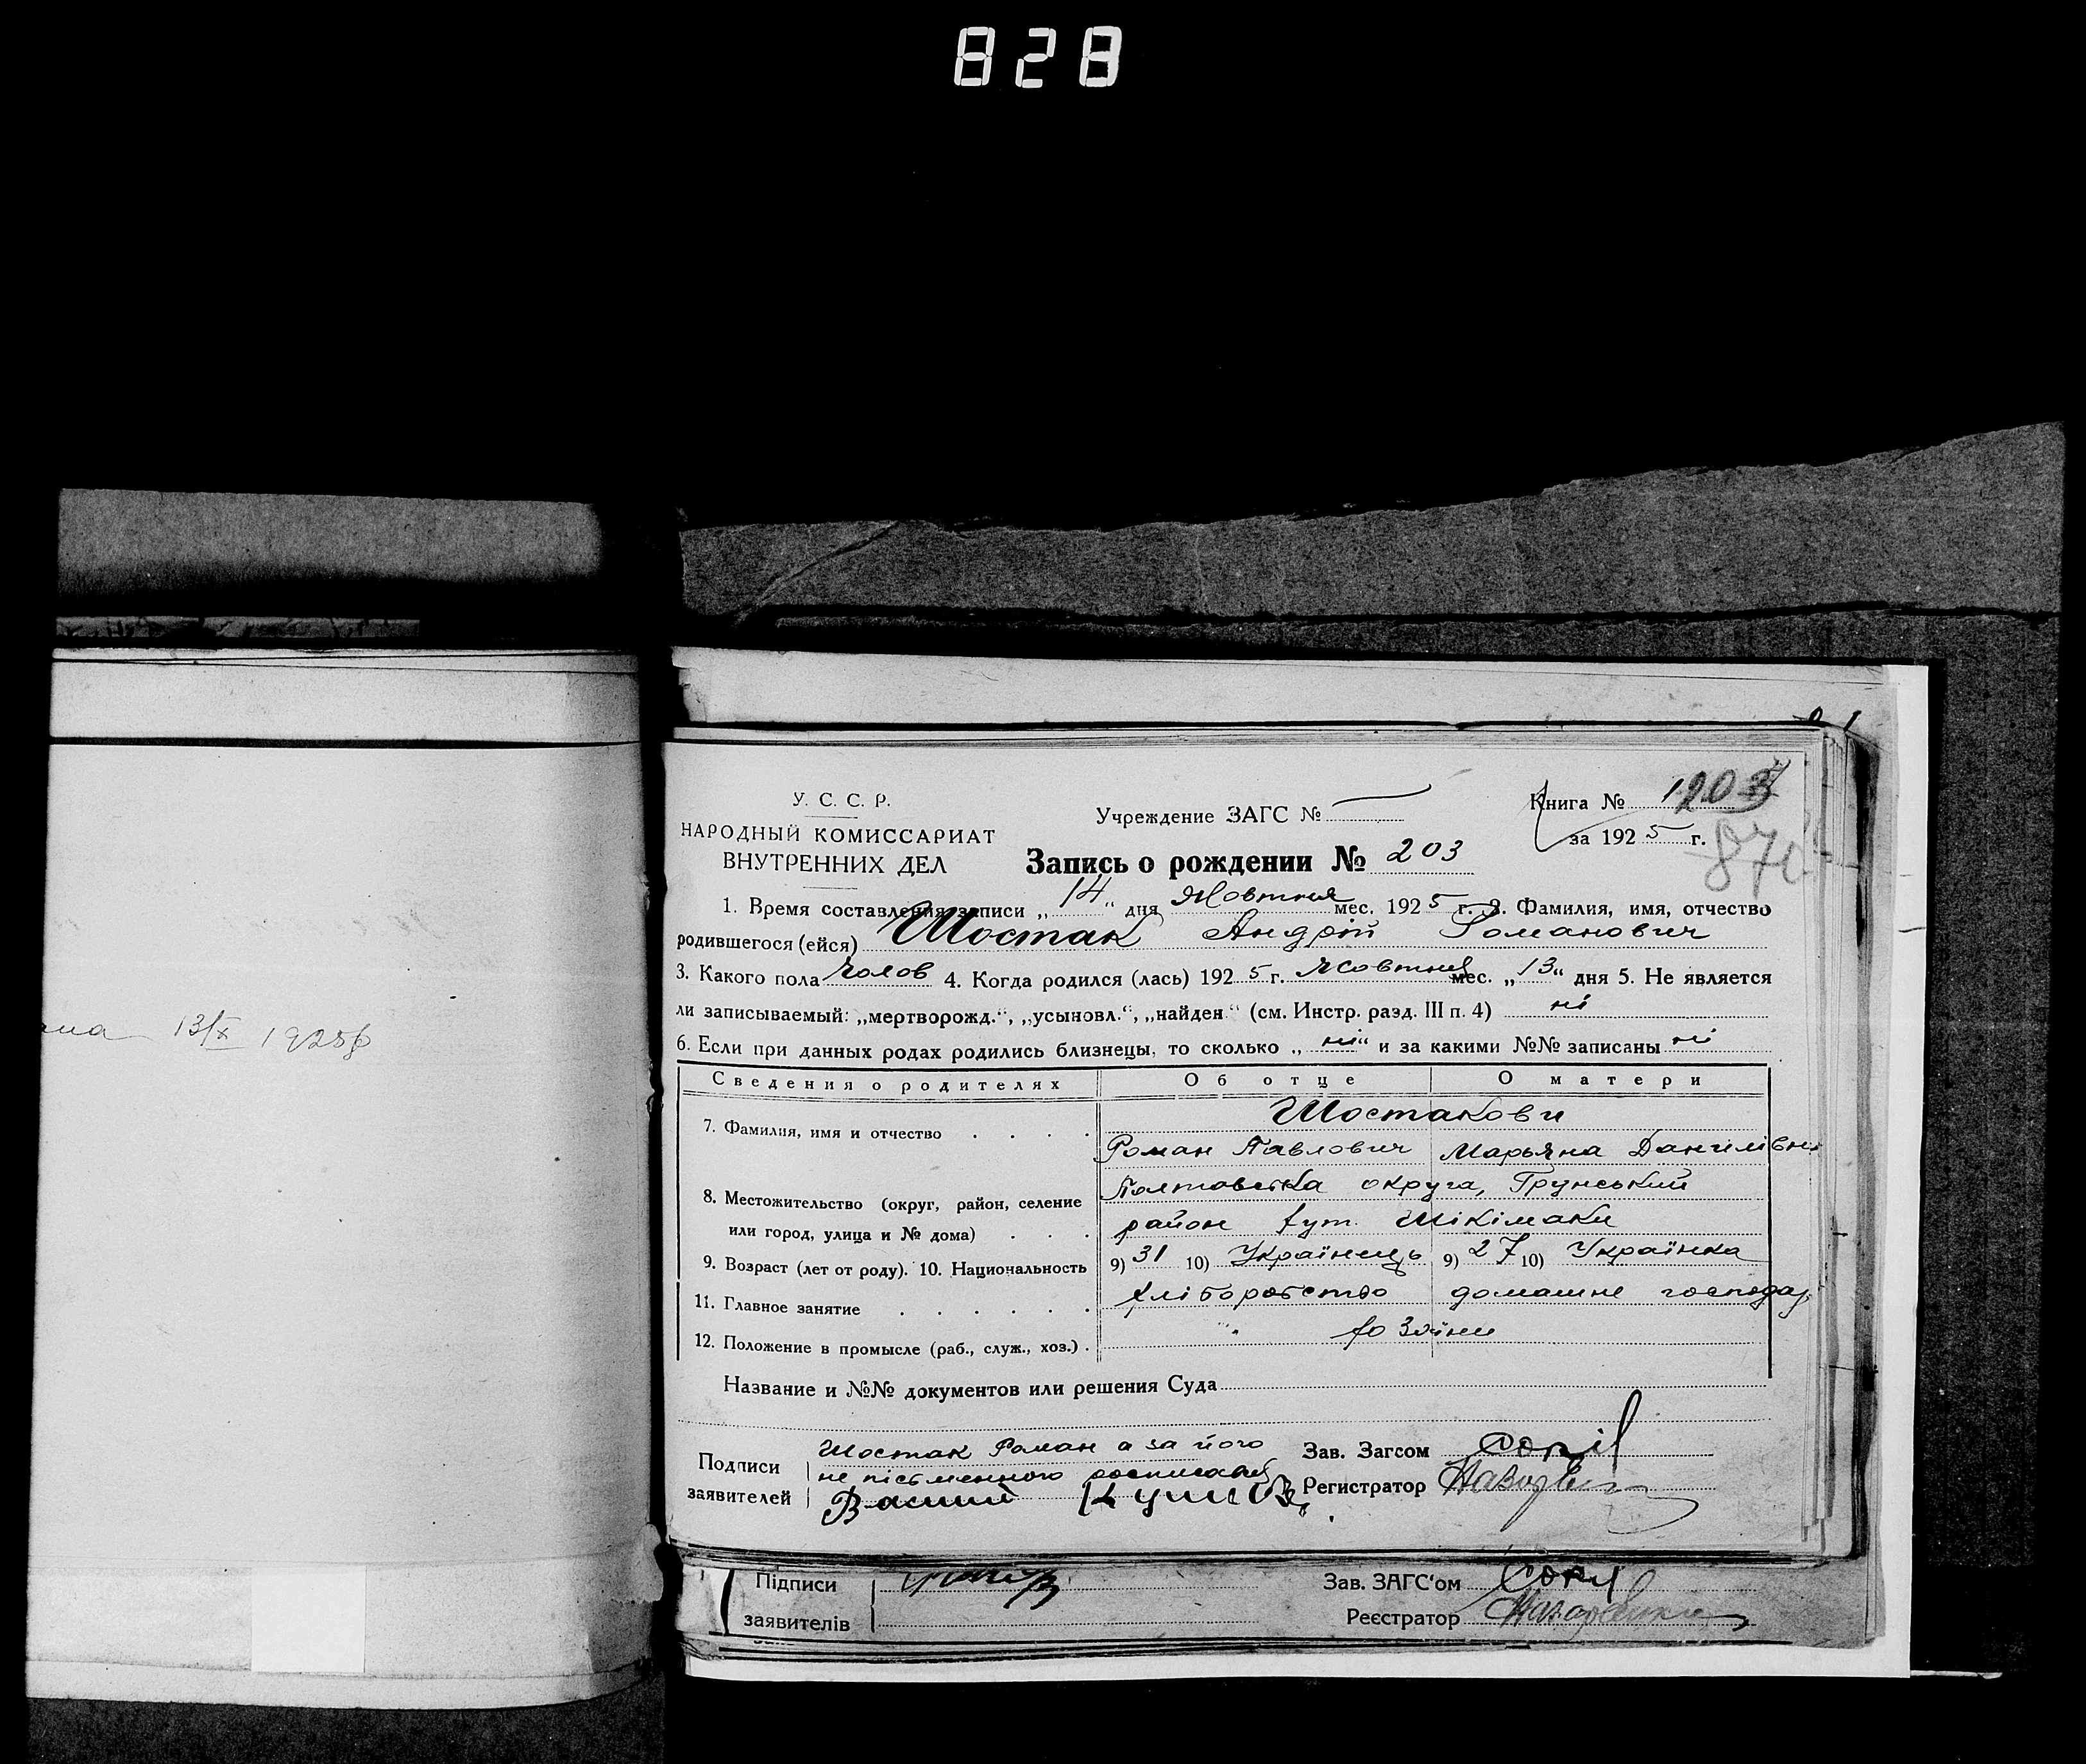 828
13/X 1925р
У. С. С. Р.
НАРОДНЫЙ КОМИССАРИАТ
ВНУТРЕННИХ ДЕЛ
Учреждение ЗАГС №
Книга № 1203
за 1925 г.
87
Запись о рождении № 203
1. Время составления записи „14“ дня Жовтня мес. 1925 г. 2. Фамилия, имя, отчество
родившегося (ейся) Шостак Андрій Романович
3. Какого пола Чолов 4. Когда родился (лась) 1925 г. Жовтня мес. „13“ дня 5. Не является
ли записываемый: „мертворожд.“, „усыновл.“, „найден.“ (см. Инстр. разд. III п. 4) ні
6. Если при данных родах родились близнецы, то сколько „ні“ и за какими №№ записаны ні
Сведения о родителях Об отце О матери
Шостакови
7. Фамилия, имя и отчество
Роман Павлович Марьяна Данилівн
Полтавська округа, Грунський
8. Местожительство (округ, район, селение
или город, улица и № дома) район хут. Шікімаки
9. Возраст (лет от роду). 10. Национальность 9) 31 10) Українець 9) 27 10) Українка
11. Главное занятие хліборобство домашне господар
12. Положение в промысле (раб., служ., хоз.)
Название и №№ документов или решения Суда
Подписи
заявителей
Шостак Роман а за його
не письменного росписавсь
Зав. Загсом
Регистратор
Підписи
заявителів
Зав. ЗАГС'ом
Реєстратор